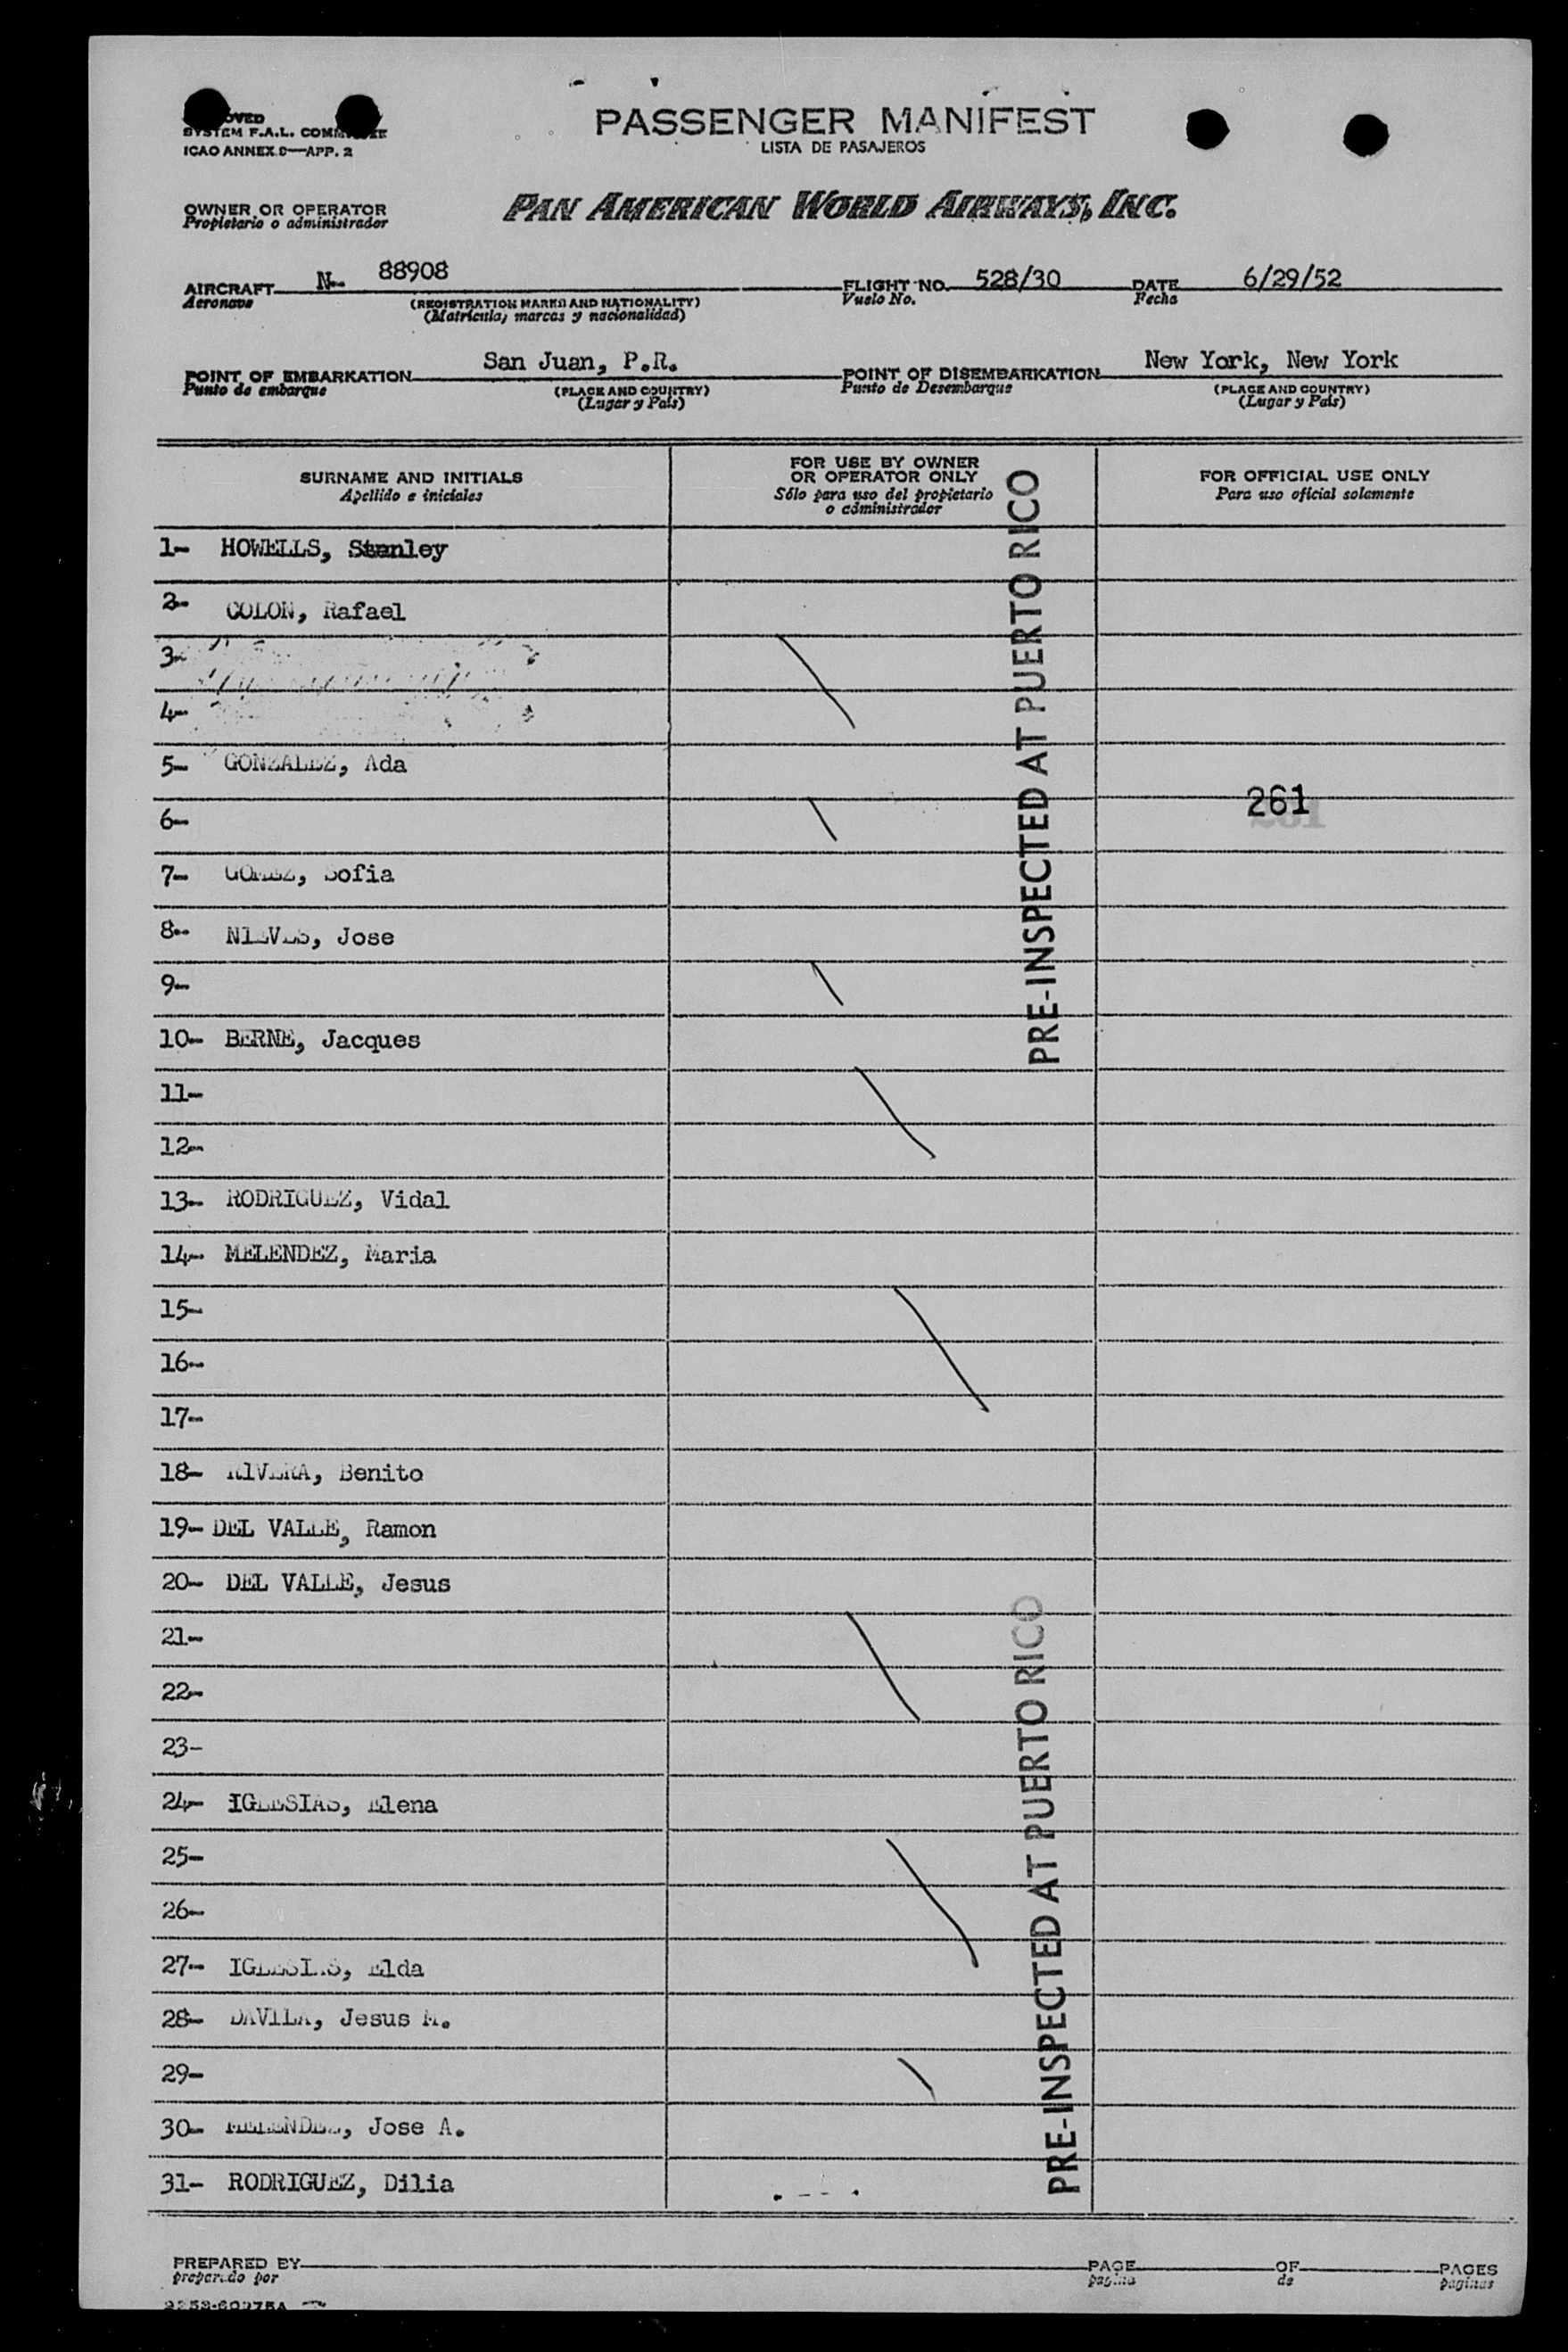 PASSENGER MANIFEST
LISTA DE PASAJEROS
SYSTEM F.A.L.
ICAO ANNEX 9—APP. 2
OWNER OR OPERATOR
Propietario o administrador
PAN AMERICAN WORLD AIRWAYS, INC.
AIRCRAFT N- 88908 FLIGHT NO. 528/30 DATE 6/29/52
Aeronave (REGISTRATION MARKS AND NATIONALITY) Vuelo No. Fecha
(Matrícula, marcas y nacionalidad)
POINT OF EMBARKATION San Juan, P.R. POINT OF DISEMBARKATION New York, New York
Punto de embarque (PLACE AND COUNTRY) Punto de Desembarque (PLACE AND COUNTRY)
(Lugar y País) (Lugar y País)
SURNAME AND INITIALS
Apellido e iniciales
FOR USE BY OWNER
OR OPERATOR ONLY
Sólo para uso del propietario
o administrador
FOR OFFICIAL USE ONLY
Para uso oficial solamente
1- HOWELLS, Stanley
2- COLON, Rafael
3-
4-
5- GONZALEZ, Ada
261
6-
7- GOMEZ, Sofia
8- NIEVES, Jose
9-
10- BERNE, Jacques
11-
12-
13- RODRIGUEZ, Vidal
14- MELENDEZ, Maria
15-
16-
17-
18- RIVERA, Benito
19- DEL VALLE, Ramon
20- DEL VALLE, Jesus
21-
22-
23-
24- IGLESIAS, Elena
25-
26-
27- IGLESIAS, Elda
28- DAVILA, Jesus M.
29-
30- MELENDEZ, Jose A.
31- RODRIGUEZ, Dilia
PRE-INSPECTED AT PUERTO RICO
PRE-INSPECTED AT PUERTO RICO
PREPARED BY PAGE OF PAGES
preparado por pagina de paginas